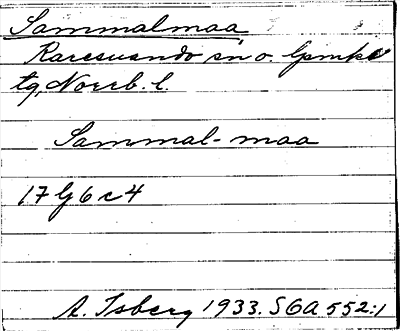 Sammalmaa
Karesuando sn o. Gpmks
tg, Norrb. l.
Sammal-maa
17 G 6 c 4
A. Isberg 1933. SGA 552:1